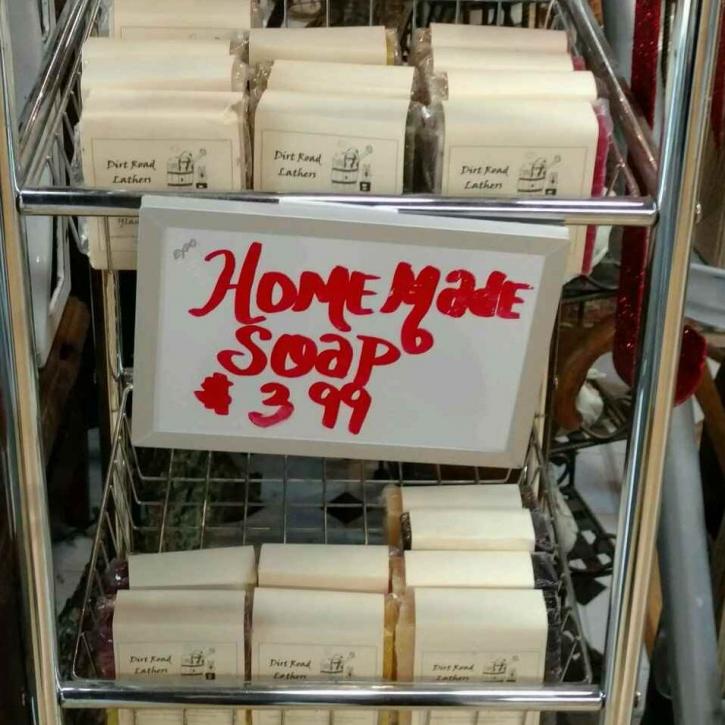 Dirt Road
Lathers
Dirt Road
Lathers
Dirt Road
Lathers
HOMEMADE
SOAP
$3.99
Dirt Road
Lathers
Dirt Road
Lathers
Dirt Road
Lathers